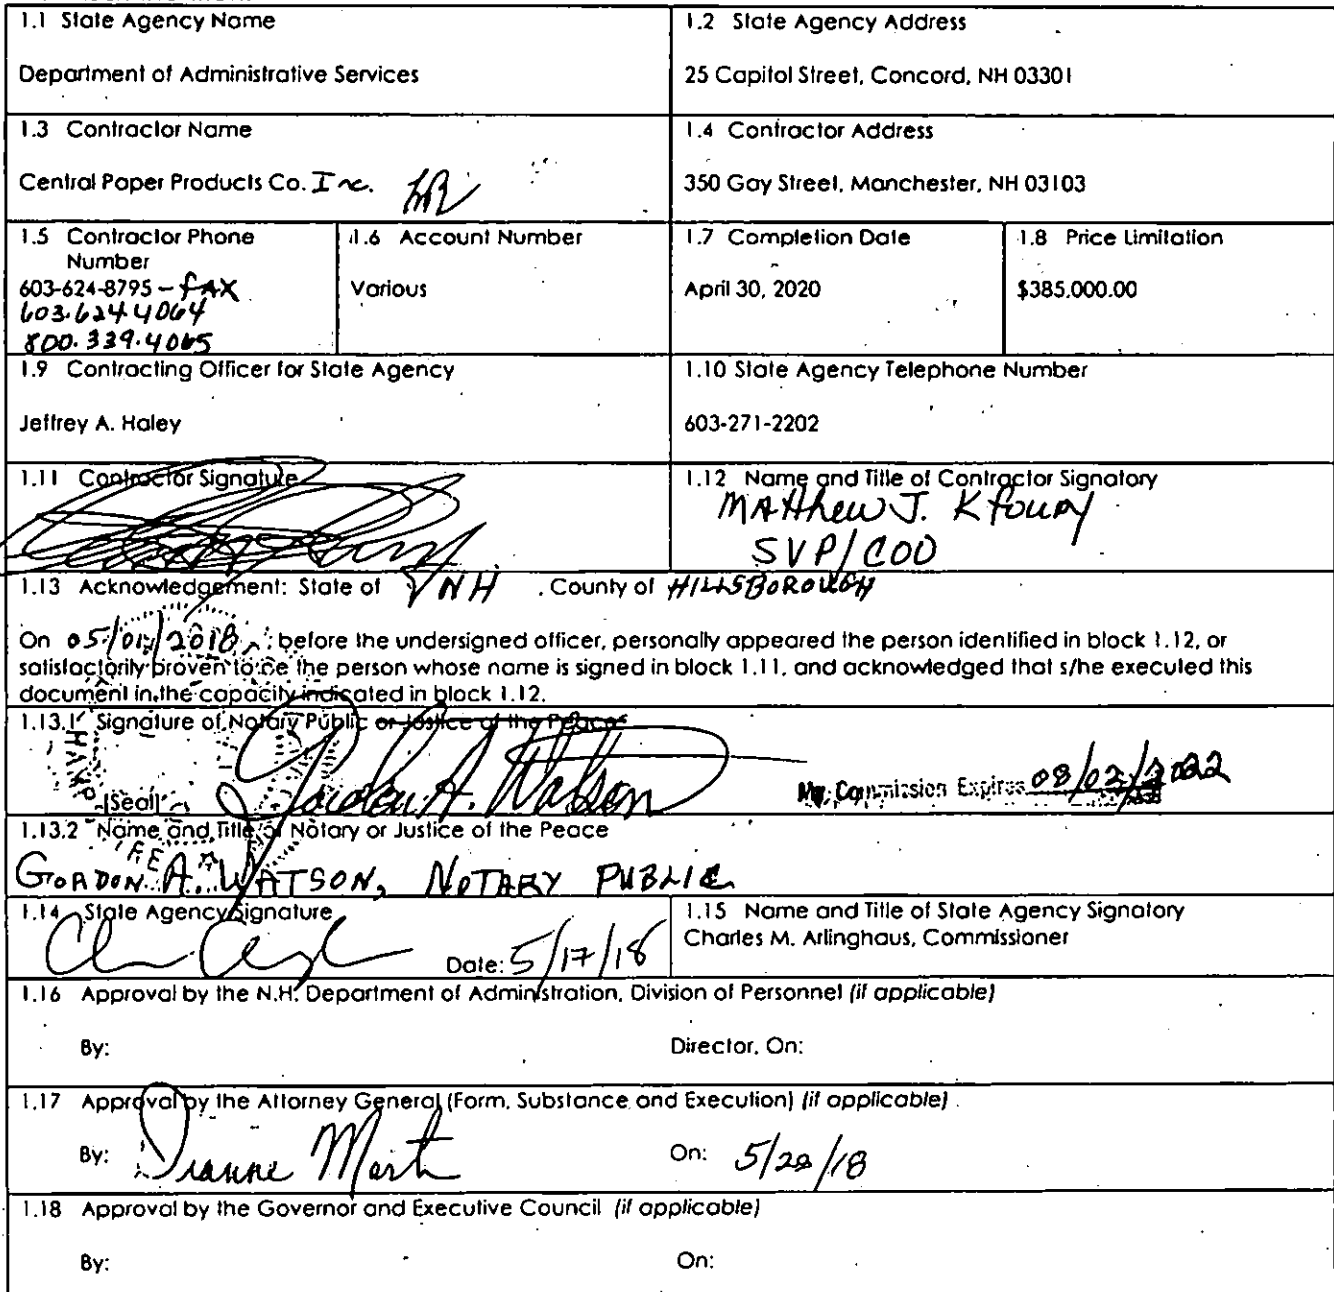 1.1 State Agency Name
Department of Administrative Services
1.2 State Agency Address
25 Capitol Street, Concord, NH 03301
1.3 Contractor Name
Central Paper Products Co. Inc.
1.4 Contractor Address
350 Gay Street, Manchester, NH 03103
1.5 Contractor Phone
Number
603-624-8795 - FAX
603.624.4064
800.339.4065
1.6 Account Number
Various
1.7 Completion Date
April 30, 2020
1.8 Price Limitation
$385,000.00
1.9 Contracting Officer for State Agency
Jeffrey A. Haley
1.10 State Agency Telephone Number
603-271-2202
1.11 Contractor Signature
1.12 Name and Title of Contractor Signatory
Matthew J. Kfoury
SVP/COO
1.13 Acknowledgement: State of NH . County of HILLSBOROUGH
On 05/01/2018, before the undersigned officer, personally appeared the person identified in block 1.12, or
satisfactorily proven to be the person whose name is signed in block 1.11, and acknowledged that s/he executed this
document in the capacity indicated in block 1.12.
1.13.1 Signature of Notary Public or Justice of the Peace
Gordon A. Watson
[Seal]
My Commission Expires 08/02/2022
1.13.2 Name and Title of Notary or Justice of the Peace
GORDON A. WATSON, NOTARY PUBLIC
1.14 State Agency Signature
Date: 5/17/18
1.15 Name and Title of State Agency Signatory
Charles M. Arlinghaus, Commissioner
1.16 Approval by the N.H. Department of Administration, Division of Personnel (if applicable)
By: Director, On:
1.17 Approval by the Attorney General (Form, Substance and Execution) (if applicable)
By: Dianne Mart On: 5/28/18
1.18 Approval by the Governor and Executive Council (if applicable)
By: On: